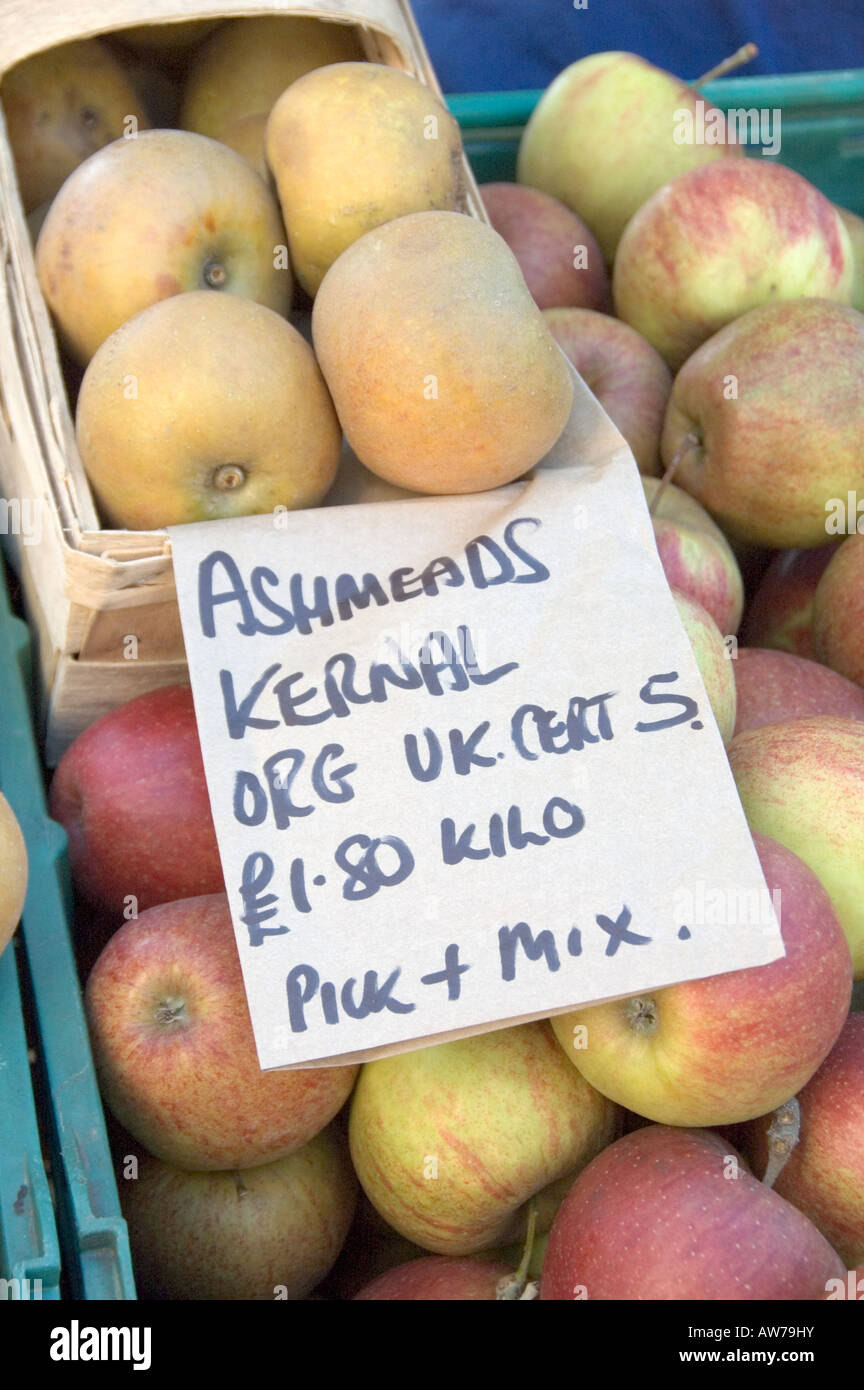 ASHMEADS
KERNAL
ORG UK. CERT 5.
£1.80 KILO
PICK + MIX.
alamy
Image ID: AW79HY
www.alamy.com